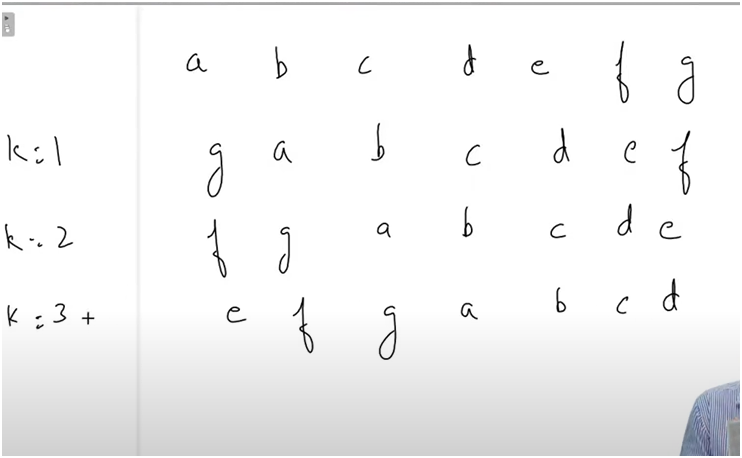 a b c d e f g
k=1 g a b c d e f
k=2 f g a b c d e
k=3+ e f g a b c d